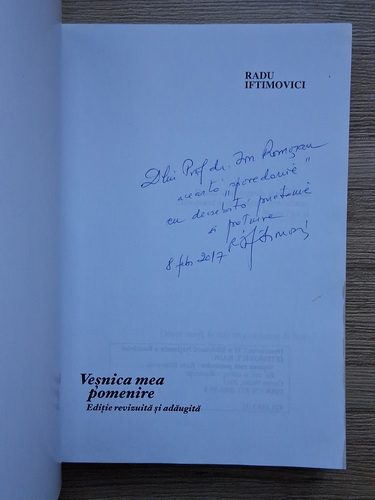 RADU
IFTIMOVICI
Dlui Prof. dr. Ion Romoșan
această „sporovăire"
cu deosebită prietenie
și prețuire
RIftimovici
8 febr 2017
Veșnica mea
pomenire
Ediție revizuită și adăugită